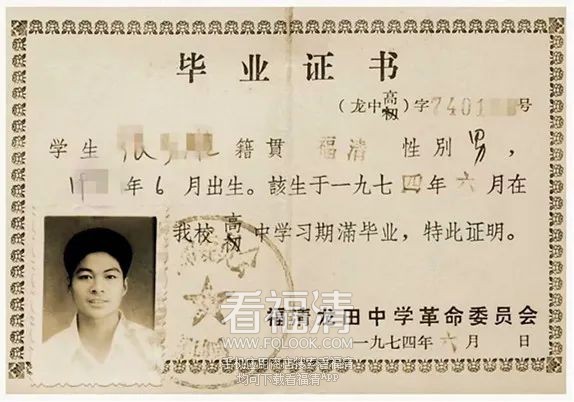 毕业证书
(龙中高初)字7401 号
学生 籍贯 福清 性别 男,
年6月出生。该生于一九七四年六月在
我校高初中学习期满毕业,特此证明。
福清龙田中学革命委员会
一九七四年六月 日
看福清
WWW.FQLOOK.COM